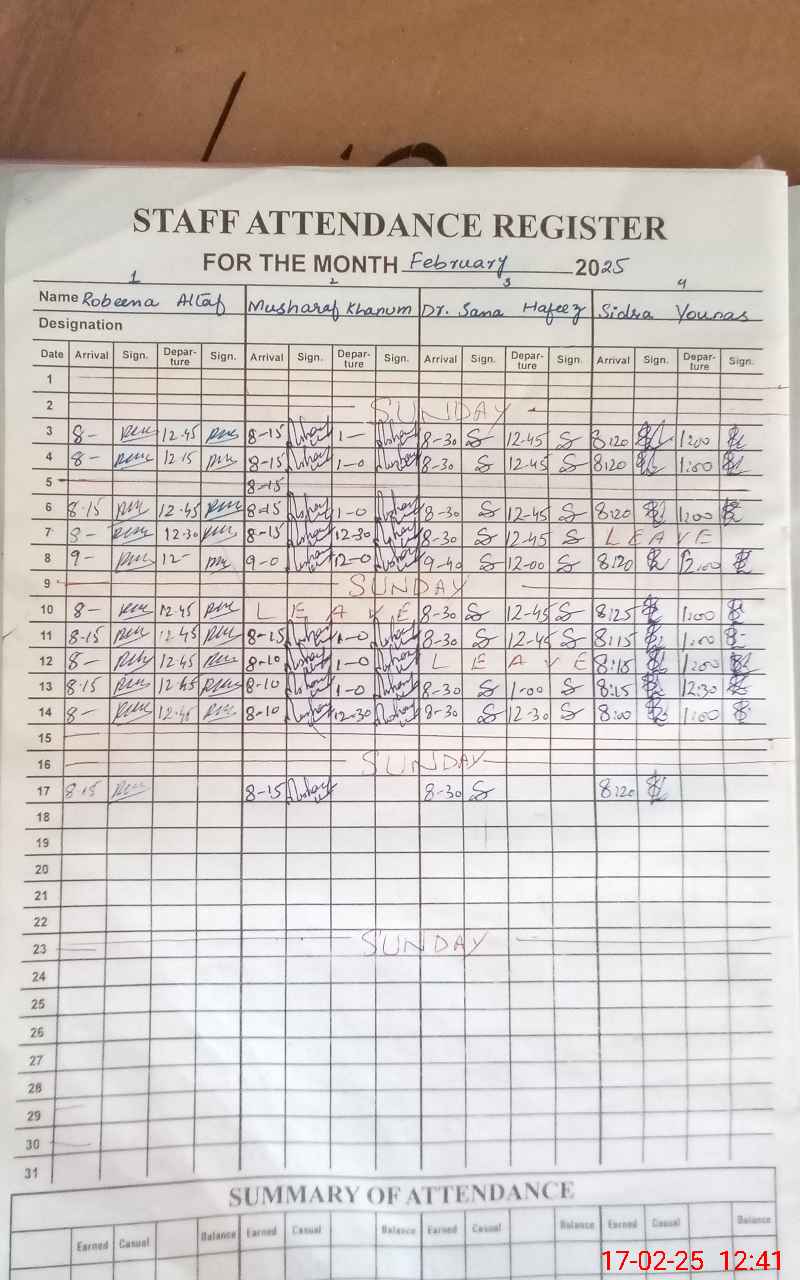 STAFF ATTENDANCE REGISTER
FOR THE MONTH February 2025
1 2 3 4
Name Robeena Altaf Musharaf Khanum Dr. Sana Hafeez Sidra Younas
Designation
Date Arrival Sign. Depar-ture Sign. Arrival Sign. Depar-ture Sign. Arrival Sign. Depar-ture Sign. Arrival Sign. Depar-ture Sign.
1
2 SUNDAY
3 8- 12-45 8-15 1- 8-30 S 12-45 S 8:20 1:00
4 8- 12-15 8-15 1-0 8-30 S 12-45 S 8:20 1:00
5 8-15
6 8-15 12-45 8-15 1-0 8-30 S 12-45 S 8:20 1:00
7 8- 12-30 8-15 12-30 8-30 S 12-45 S LEAVE
8 9- 12- 9-0 12-0 9-40 S 12-00 S 8:20 12:00
9 SUNDAY
10 8- 12-45 LEAVE 8-30 S 12-45 S 8:25 1:00
11 8-15 12-45 8-15 1-0 8-30 S 12-45 S 8:15 1:00
12 8- 12-45 8-10 1-0 LEAVE 8:15 1:00
13 8-15 12-45 8-10 1-0 8-30 S 1-00 S 8:15 12:30
14 8- 12-45 8-10 12-30 8-30 S 12-30 S 8:00 1:00
15
16 SUNDAY
17 8-15 8-15 8-30 S 8:20
18
19
20
21
22
23 SUNDAY
24
25
26
27
28
29
30
31
SUMMARY OF ATTENDANCE
Earned Casual Balance Earned Casual Balance Earned Casual Balance Earned Casual Balance
17-02-25 12:41